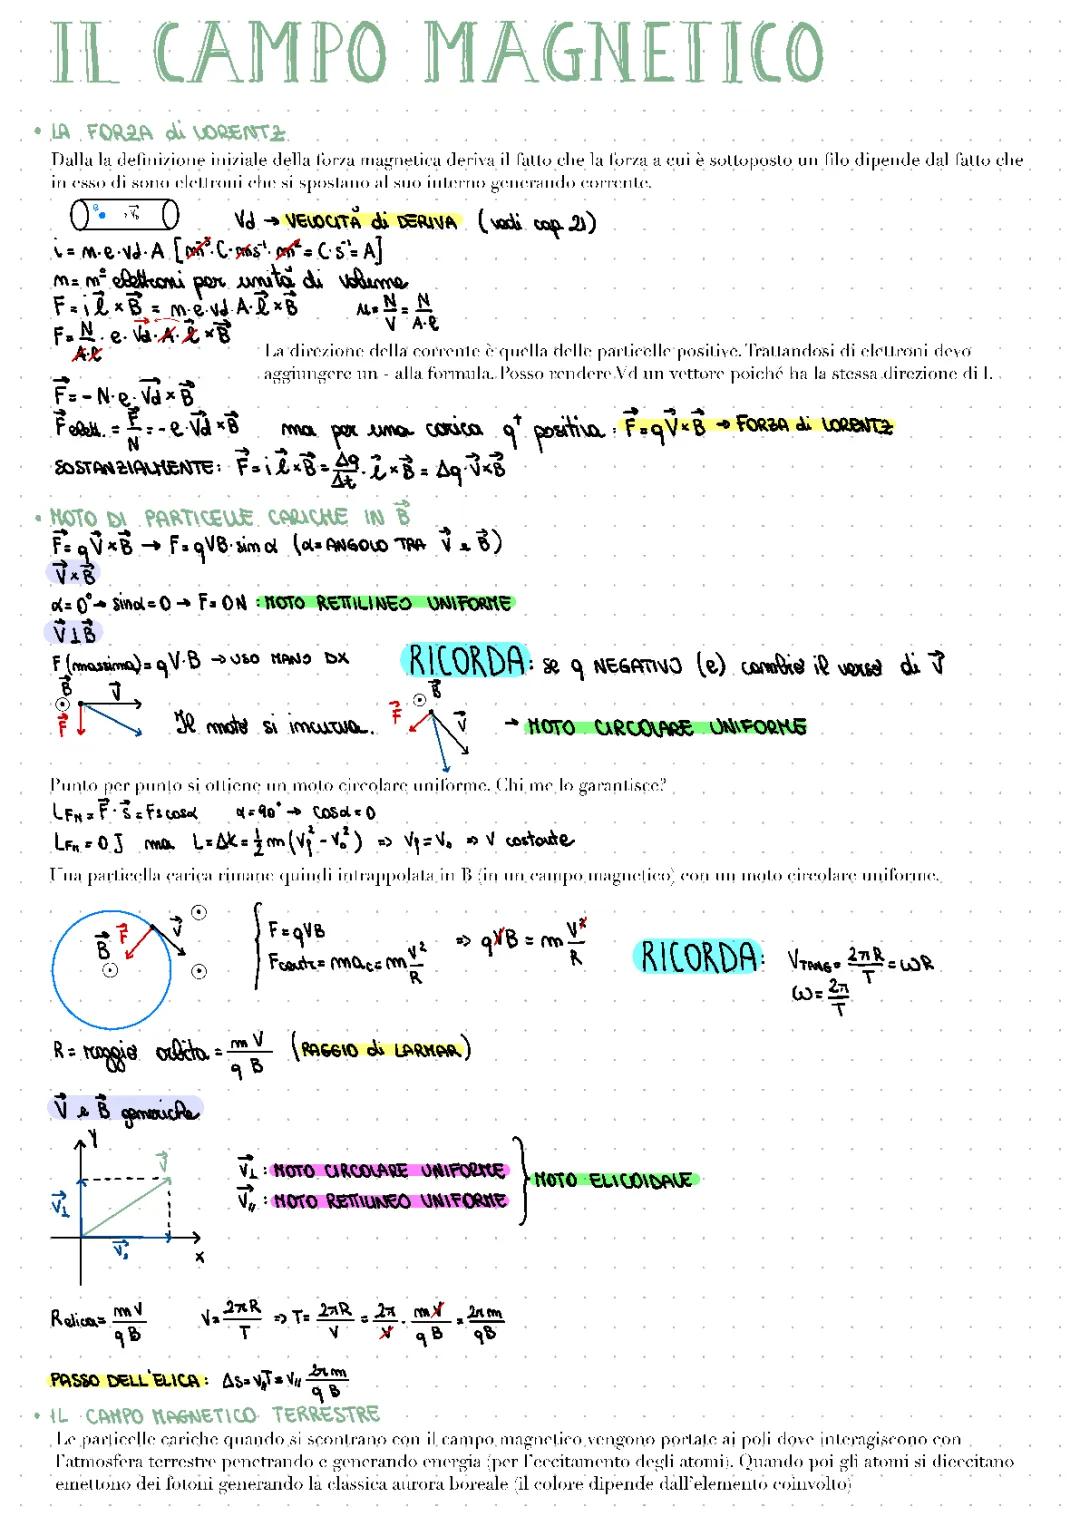 IL CAMPO MAGNETICO
• LA FORZA di LORENTZ
Dalla la definizione iniziale della forza magnetica deriva il fatto che la forza a cui è sottoposto un filo dipende dal fatto che
in esso di sono elettroni che si spostano al suo interno generando corrente.
Vd → VELOCITÀ di DERIVA (vedi cap 21)
i = n·e·vd·A [m⁻³·C·ms⁻¹·m² = C·s⁻¹ = A]
n = n° elettroni per unità di volume
F = i l⃗ × B⃗ = n·e·vd·A·l⃗ × B⃗ n = N/V = N/A·l
F = N/A·l · e · Vd · A · l⃗ × B⃗
La direzione della corrente è quella delle particelle positive. Trattandosi di elettroni devo
aggiungere un - alla formula. Posso rendere Vd un vettore poiché ha la stessa direzione di l.
F⃗ = - N·e·V⃗d × B⃗
F⃗ elett. = F⃗/N = - e·V⃗d × B⃗ ma per una carica q⁺ positiva: F⃗ = qV⃗ × B⃗ → FORZA di LORENTZ
SOSTANZIALMENTE: F⃗ = i l⃗ × B⃗ = Δq/Δt · l⃗ × B⃗ = Δq·V⃗ × B⃗
• MOTO DI PARTICELLE CARICHE IN B⃗
F⃗ = qV⃗ × B⃗ → F = qVB·sinα (α = ANGOLO TRA V⃗ e B⃗)
V⃗ × B⃗
α = 0° → sinα = 0 → F = 0N : MOTO RETTILINEO UNIFORME
V⃗ ⊥ B⃗
F (massima) = qV·B → USO MANO DX
RICORDA: se q NEGATIVO (e) cambio il verso di V⃗
B⃗ V⃗ F⃗
Il moto si incurva.
F⃗ B⃗ V⃗
→ MOTO CIRCOLARE UNIFORME
Punto per punto si ottiene un moto circolare uniforme. Chi me lo garantisce?
LFM = F⃗·s⃗ = Fs cosα α = 90° → cosα = 0
LFM = 0 J ma L = ΔK = ½ m (Vf² - V₀²) => Vf = V₀ => V costante
Una particella carica rimane quindi intrappolata in B (in un campo magnetico) con un moto circolare uniforme.
B⃗ F⃗ V⃗
{ F = qVB
Fcentr = mac = m V²/R
=> qVB = m V²/R
RICORDA: VTANG = 2πR/T = ωR
ω = 2π/T
R = raggio orbita = mV/qB (RAGGIO di LARMAR)
V⃗ e B⃗ generiche
Y V⃗ V⃗⊥ V⃗∥ X
V⃗⊥ : MOTO CIRCOLARE UNIFORME
V⃗∥ : MOTO RETTILINEO UNIFORME
} MOTO ELICOIDALE
Relica = mV/qB V = 2πR/T => T = 2πR/V = 2π/V · mV/qB = 2πm/qB
PASSO DELL'ELICA: ΔS = V∥T = V∥ 2πm/qB
• IL CAMPO MAGNETICO TERRESTRE
Le particelle cariche quando si scontrano con il campo magnetico vengono portate ai poli dove interagiscono con
l'atmosfera terrestre penetrando e generando energia (per l'eccitamento degli atomi). Quando poi gli atomi si diecitano
emettono dei fotoni generando la classica aurora boreale (il colore dipende dall'elemento coinvolto)